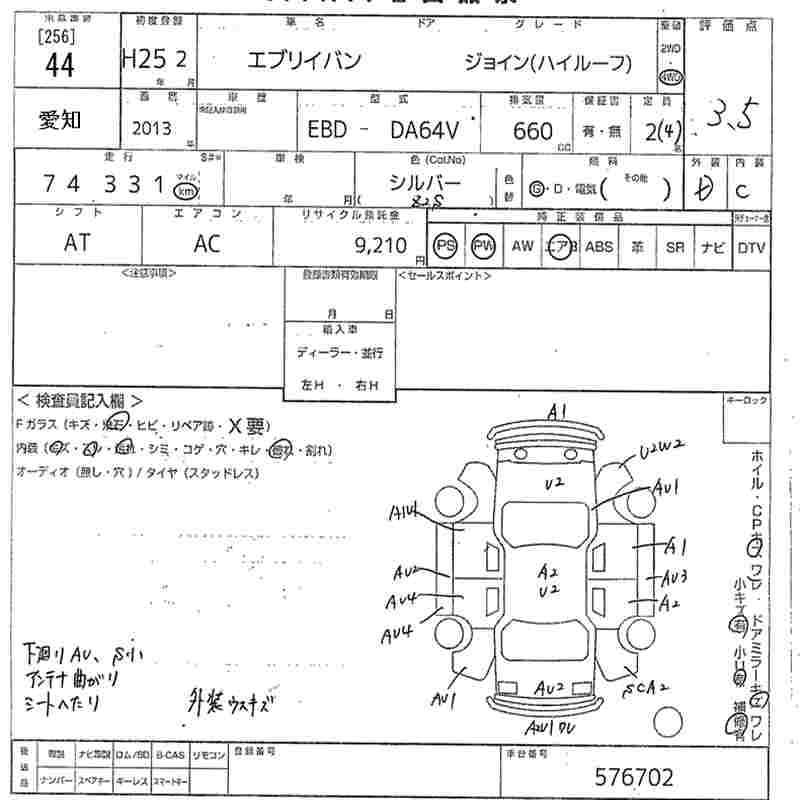 [256]
44
初度登録
H25 2
年 月
車名 ドア グレード
エブリイバン ジョイン(ハイルーフ)
2WD
4WD
評価点
3.5
愛知
2013
年
車歴
型式
EBD - DA64V
排気量
660
CC
保証書
有・無
定員
2(4)
名
走行
74 331
マイル
km
車検
年 月
色(Col.No)
シルバー
( Z2S )
色替
燃料
G・D・電気( その他 )
外装
内装
C
シフト
AT
エアコン
AC
リサイクル預託金
9,210 円
純正装備品
PS PW AW エアB ABS 革 SR ナビ DTV
<注意事項>
登録書類有効期限
月 日
輸入車
ディーラー・並行
左H ・ 右H
<セールスポイント>
キーロック
<検査員記入欄>
Fガラス(キズ・飛石・ヒビ・リペア跡・X要)
シミ・コゲ・穴・キレ
割れ)
オーディオ(無し・穴)/タイヤ(スタッドレス)
A1
U2W2
U2
AU1
A1U1
A1
A2
U2
AU2
AU3
AU4
A2
AU4
AU1
AU2
SCA2
下廻りAU、S小
アンテナ曲がり
シートへたり
外装ウスキズ
ホイル・CPキズワレ・ドアミラーキズワレ
小キズ有
補修有
後送品
取説 ナビ取説 ロム/SD B-CAS リモコン
ナンバー スペアキー キーレス スマートキー
登録番号
車台番号
576702